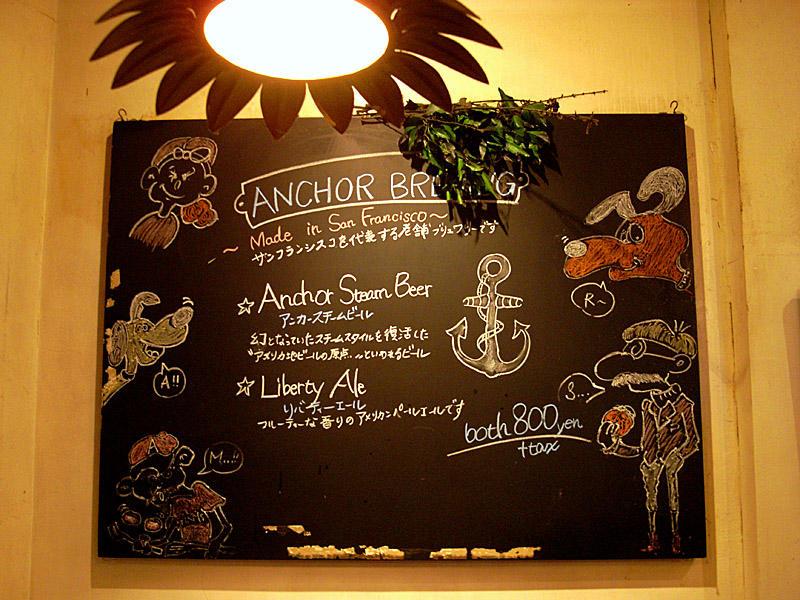 ANCHOR BR
~ Made in San Francisco ~
サンフランシスコを代表する老舗ブリュワリーです
☆ Anchor Steam Beer
アンカースチームビール
幻となっていたスチームスタイルを復活した
"アメリカ地ビールの原点"といわれるビール
☆ Liberty Ale
リバティーエール
フルーティーな香りのアメリカンペールエールです
both 800yen
+tax
R~
A!!
S...
A
M...!!